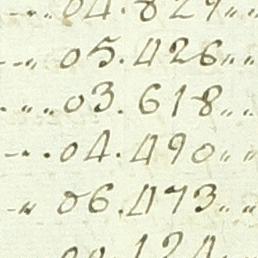 04.829〃〃
-〃 05.426〃〃
〃〃03.618〃〃
-〃04.490〃〃
-〃 06.473〃〃